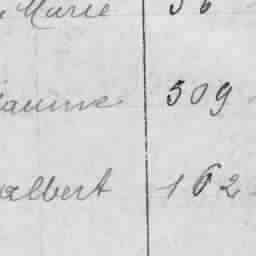 Marie 56
509
albert 162